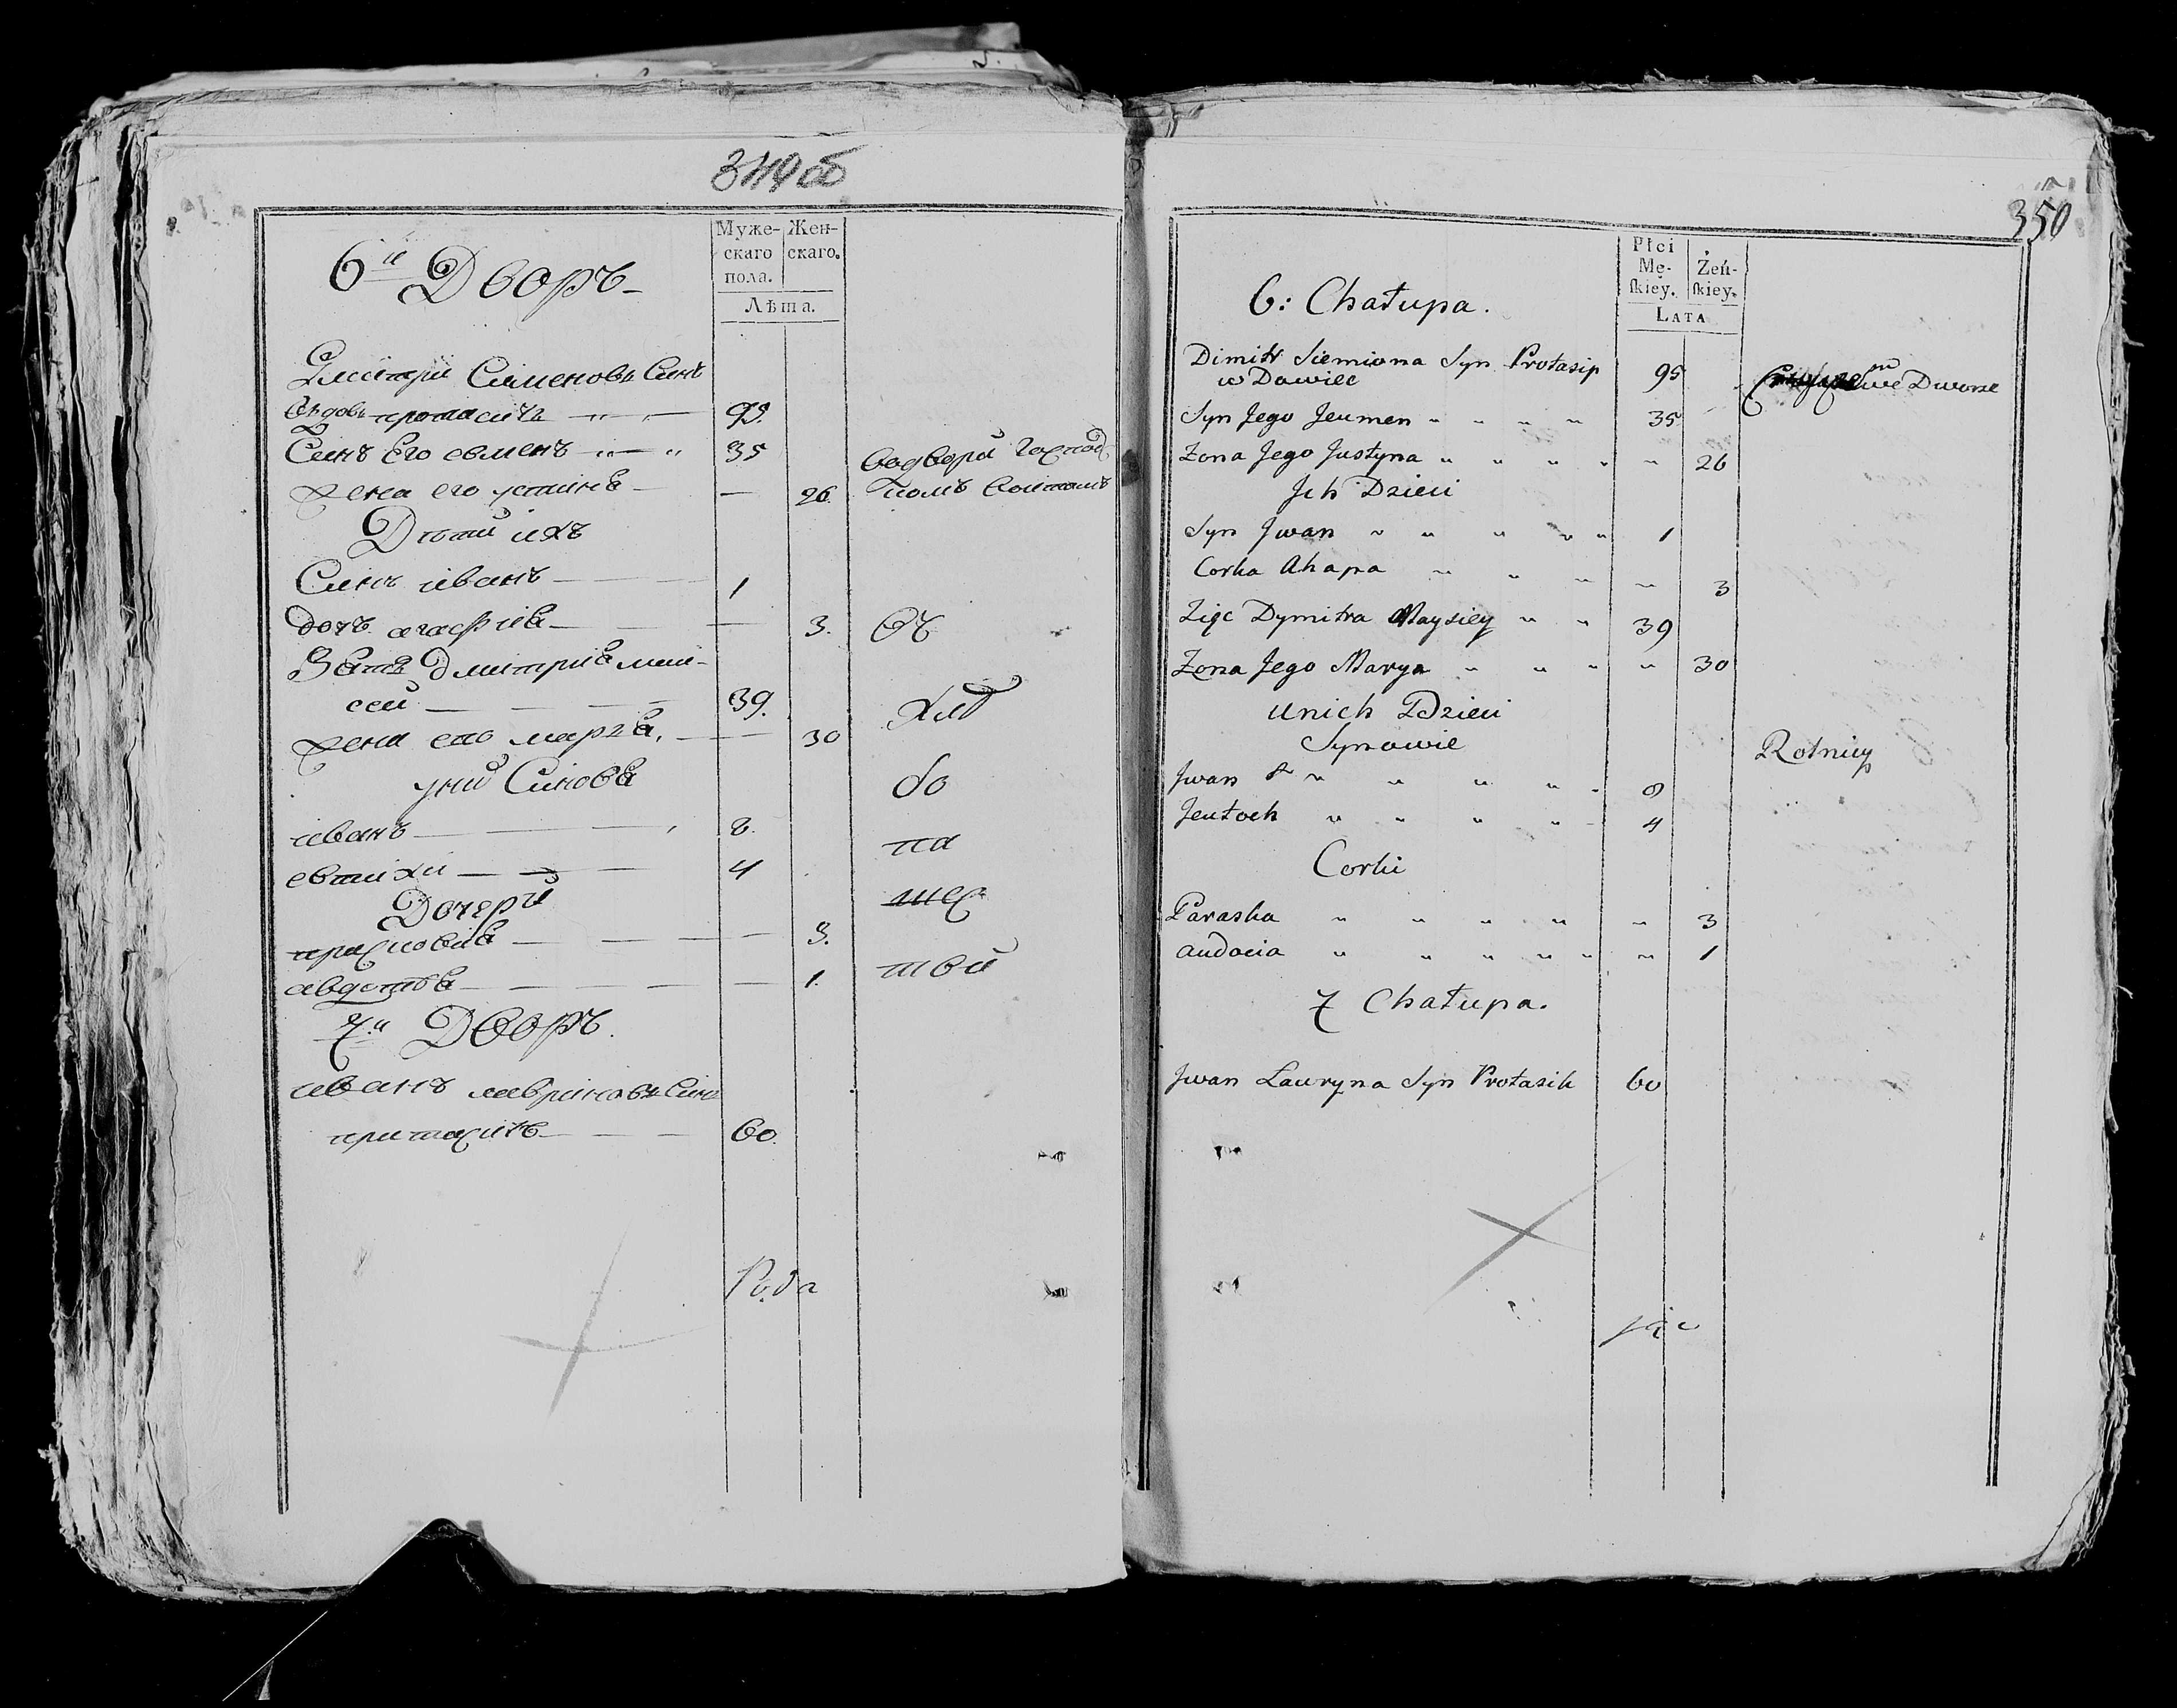 349 об
6й Дворъ
Муже-
скаго
пола.
Жен-
скаго.
Лѣта.
Дмитрiй Семеновъ Синъ
вдовъ протасичъ 95.
Синъ Его евменъ 35
жена его устинѣа — 26.
водворѣ Господ
Дѣти ихъ
Синъ иванъ 1
дочъ агафиѣа 3.
Зять Дмитриѣа мои-
сей 39.
жена его мариѣа, 30
уних Синовѣа
иванъ 8.
евтихи 4
Дочери
присковиѣа 3.
авдотѣа 1.
въ
хлѣ
бо
па
шес
твѣ
7й Дворъ.
иванъ лавриновъ Синъ
притасичъ 60.
350
6: Chałupa.
Płci
Mę-
ſkiey.
Żeń-
ſkiey.
LATA
Dimitr Siemiona Syn Protasip
wDowiec 95
we Dworze
Syn Jego Jeumen " " " " 35
Zona Jego Justyna " " " " " 26
Jch Dzieci
Syn Jwan " " " " " 1
Corka Ahapa " " " " 3
Zięc Dymitra Maysiey " " 39
Zona Jego Marya " " " " 30
unich Dzieci
Synowie
Rolnicy
Jwan " " " " 8
Jeutoch " " " " 4
Corki
Paraska " " " " " 3
audocia " " " " " " 1
7 Chałupa.
Jwan Lauryna Syn Protasik 60